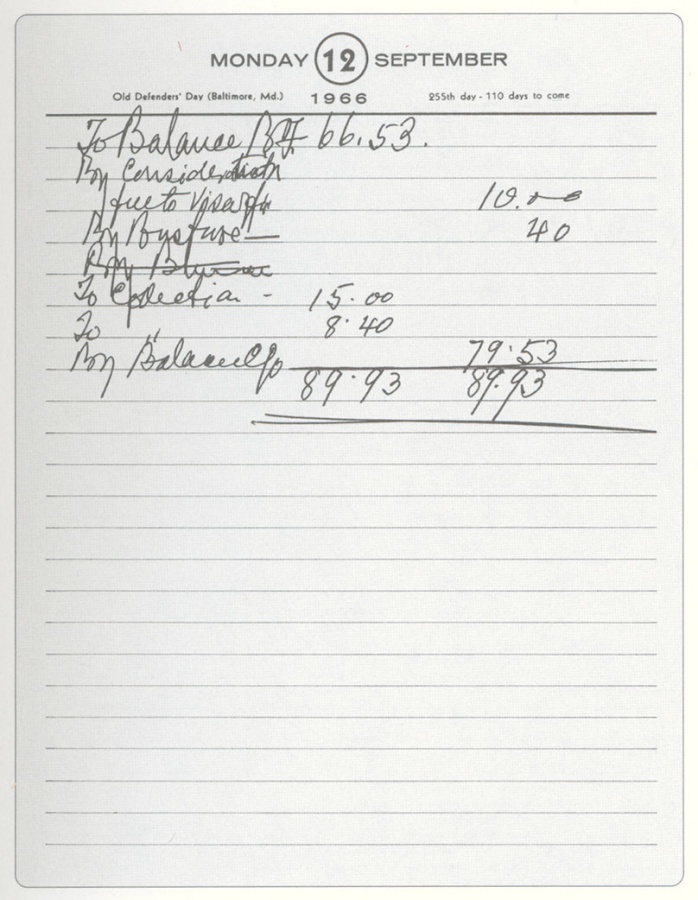 MONDAY 12 SEPTEMBER
Old Defenders' Day (Baltimore, Md.) 1966 255th day - 110 days to come
To Balance B/F 66.53.
By Consideration
due to Visa 10.00
By Bus fare — 40
By
To Collection - 15.00
To " 8.40
By Balance C/o 79.53
89.93 89.93